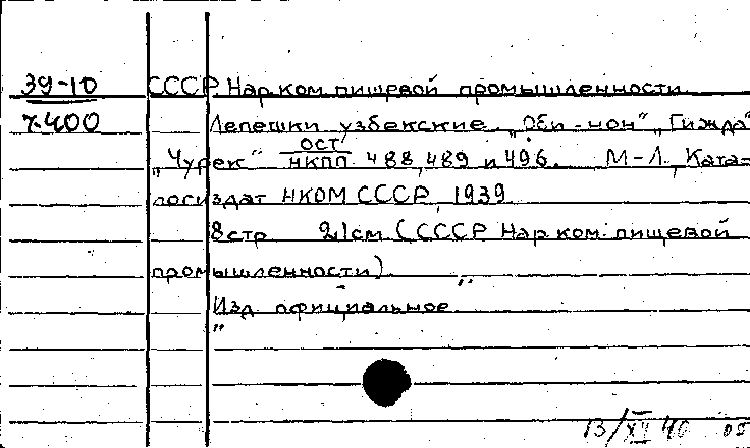 39-10 СССР. Нар.ком. пищевой промышленности.
7.400 Лепешки узбекские „Оби-нон“ „Гижда“
„Чурек“ ОСТ/НКПП 488, 489 и 496. М-Л., Ката-
логиздат НКОМ СССР, 1939.
8 стр 21 см. (СССР. Нар.ком. пищевой
промышленности).
„Изд. официальное“
13/XI 40